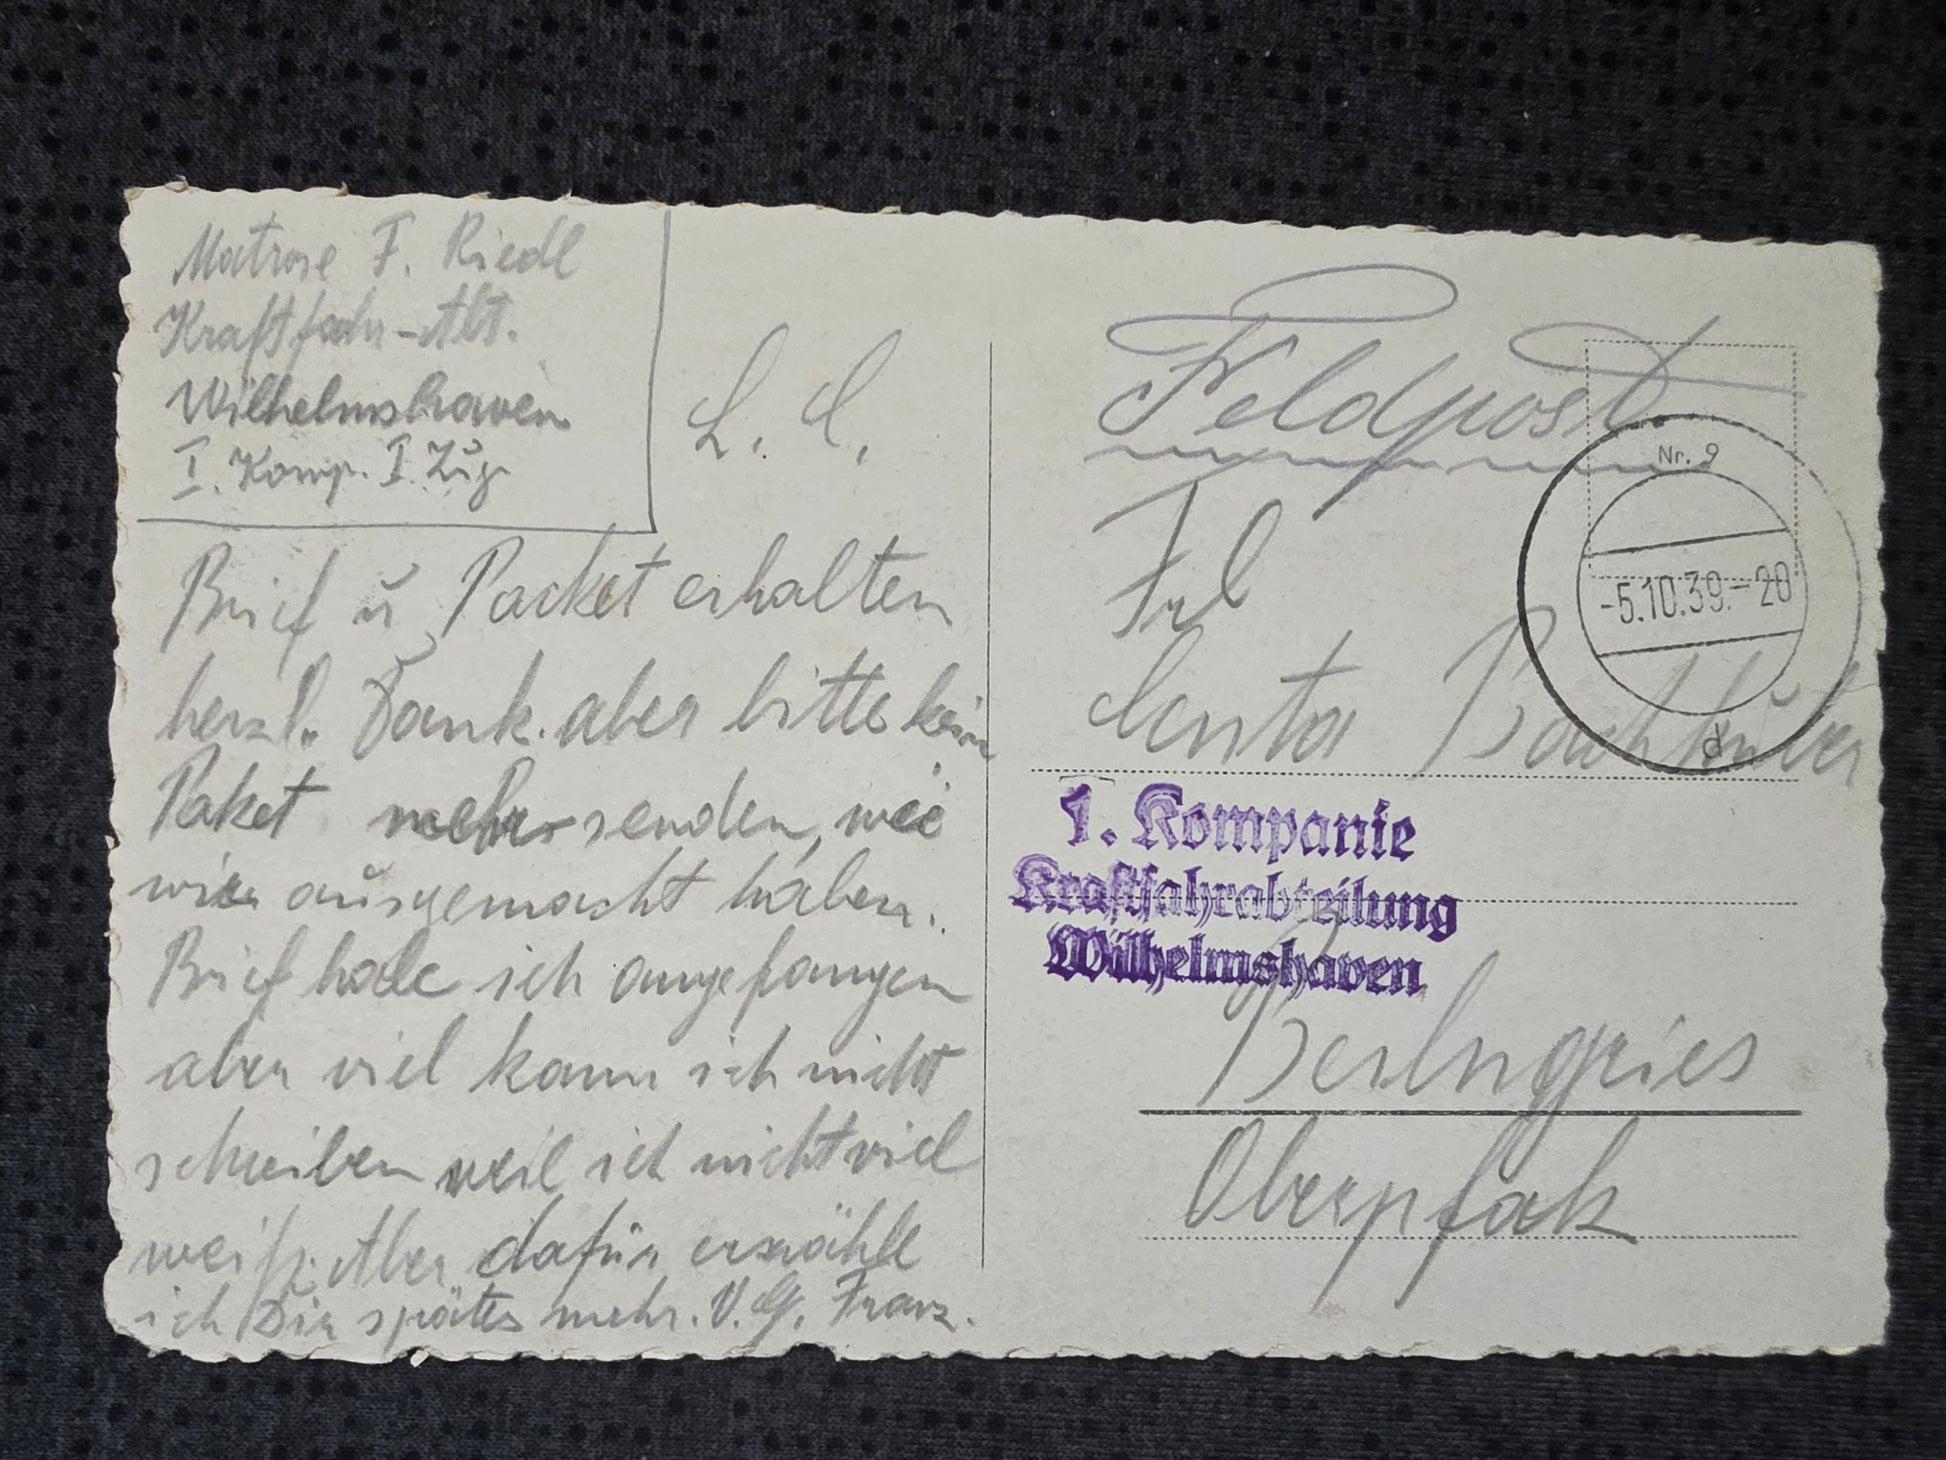 Matrose F. Riedl
Kraftfahr-Abt.
Wilhelmshaven
I. Komp. I. Zug
Brief u Packet erhalten
herzl. Dank. aber bitte kein
Paket mehr senden, wie
wir ausgemacht haben.
Brief habe ich angefangen
aber viel kann ich nicht
schreiben weil ich nicht viel
weiß. Aber dafür erzähle
ich Dir später mehr. V. G. Franz.
Feldpost
Nr. 9
-5.10.39.-20
d
Frl
1. Kompanie
Kraftfahrabteilung
Wilhelmshaven
Beilngries
Oberpfalz